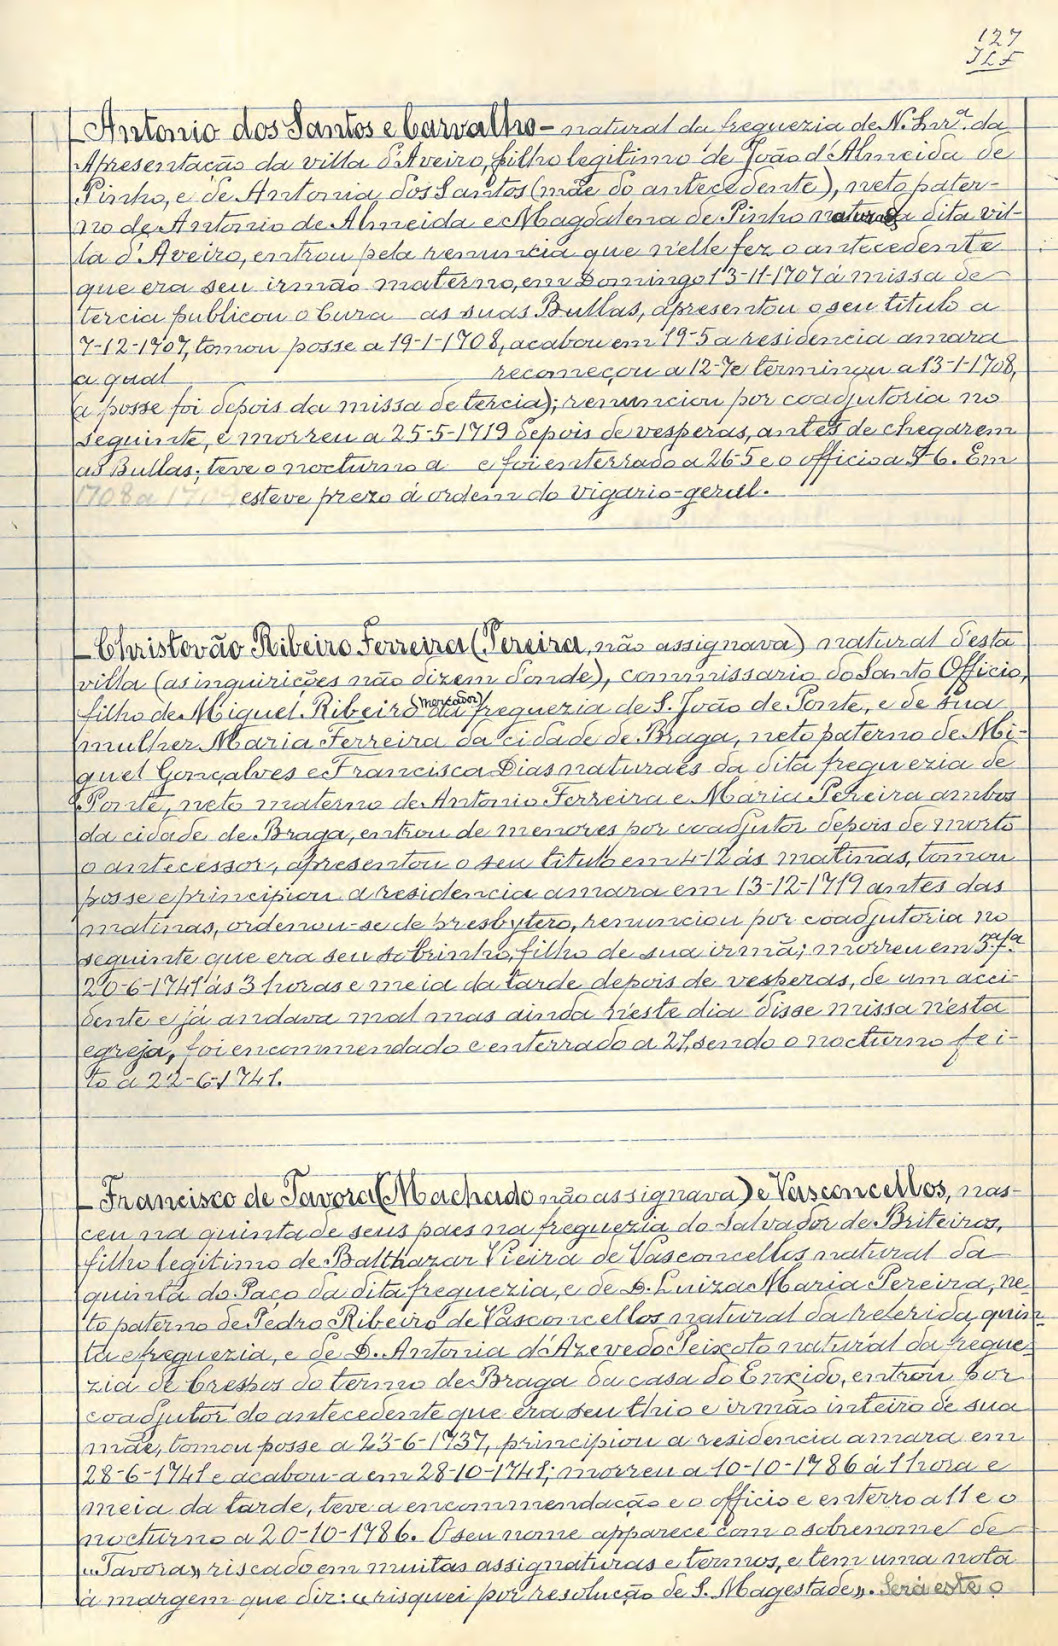 127
JLF
Antonio dos Santos e Carvalho - natural da freguezia de N. Snrª. da
Apresentação da villa d'Aveiro, filho legitimo de João d'Almeida de
Pinho, e de Antonia dos Santos (mãe do antecedente), neto pater-
no de Antonio de Almeida e Magdalena de Pinho naturaes da dita vil-
la d'Aveiro, entrou pela renuncia que n'elle fez o antecedente
que era seu irmão materno, em Domingo 13-11-1707 á missa de
tercia publicou o Cura as suas Bullas, apresentou o seu titulo a
7-12-1707, tomou posse a 19-1-1708, acabou em 19-5 a residencia amara
a qual recomeçou a 12-7 e terminou a 13-1-1708,
(a posse foi depois da missa de tercia); renunciou por coadjutoria no
seguinte, e morreu a 25-5-1719 depois de vesperas, antes de chegarem
as Bullas; teve o nocturno a e foi enterrado a 26-5 e o officio a 5-6. Em
1708 a 1709 esteve prezo á ordem do vigario-geral.
Christovão Ribeiro Ferreira (Pereira, não assignava) natural d'esta
villa (as inquirições não dizem donde), commissario do Santo Officio,
filho de Miguel Ribeiro (mercador) da freguezia de S. João de Ponte, e de sua
mulher Maria Ferreira da cidade de Braga, neto paterno de Mi-
guel Gonçalves e Francisca Dias naturaes da dita freguezia de
Ponte, neto materno de Antonio Ferreira e Maria Pereira ambos
da cidade de Braga, entrou de menores por coadjutor depois de morto
o antecessor, apresentou o seu titulo em 4-12 ás matinas, tomou
posse e principiou a residencia amara em 13-12-1719 antes das
matinas, ordenou-se de presbytero, renunciou por coadjutoria no
seguinte que era seu sobrinho, filho de sua irmã; morreu em 3.ª f.ª
20-6-1741 ás 3 horas e meia da tarde depois de vesperas, de um acci-
dente e já andava mal mas ainda n'este dia disse missa n'esta
egreja, foi encommendado e enterrado a 21, sendo o nocturno fei-
to a 22-6-1741.
Francisco de Tavora (Machado não assignava) e Vasconcellos, nas-
ceu na quinta de seus paes na freguezia do Salvador de Briteiros,
filho legitimo de Balthazar Vieira de Vasconcellos natural da
quinta do Paço da dita freguezia, e de D. Luiza Maria Pereira, ne-
to paterno de Pedro Ribeiro de Vasconcellos natural da referida quin-
ta e freguezia, e de D. Antonia d'Azevedo Peixoto natural da fregue-
zia de Crespos do termo de Braga da casa do Enxido, entrou por
coadjutor do antecedente que era seu thio e irmão inteiro de sua
mãe, tomou posse a 23-6-1737, principiou a residencia amara em
28-6-1741 e acabou-a em 28-10-1741; morreu a 10-10-1786 á 1 hora e
meia da tarde, teve a encommendação e o officio e enterro a 11 e o
nocturno a 20-10-1786. O seu nome apparece com o sobrenome de
"Tavora" riscado em muitas assignaturas e termos, e tem uma nota
á margem que diz: "risquei por resolução de S. Magestade". Será este o